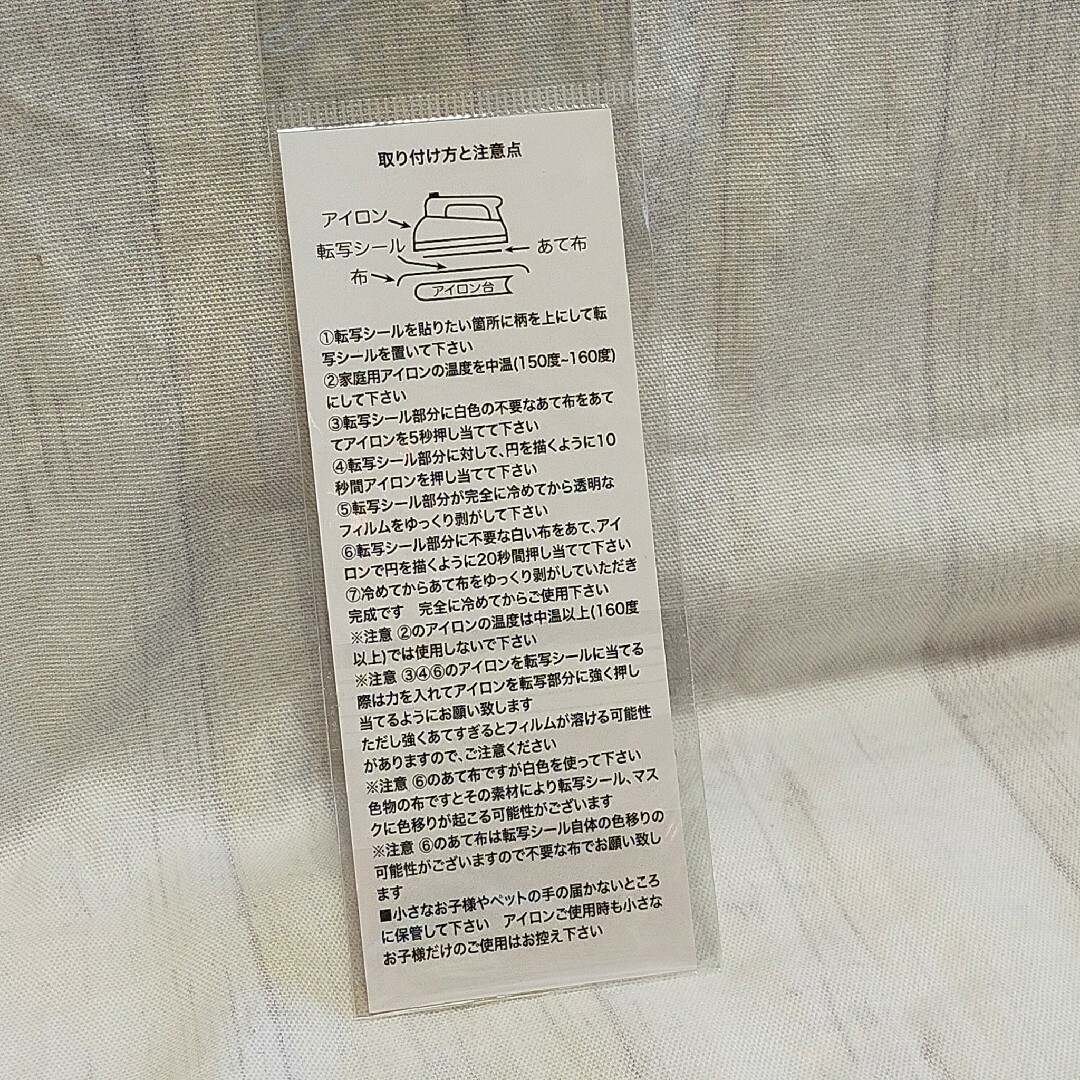 取り付け方と注意点
アイロン
転写シール
あて布
布
アイロン台
①転写シールを貼りたい箇所に柄を上にして転
写シールを置いて下さい
②家庭用アイロンの温度を中温(150度~160度)
にして下さい
③転写シール部分に白色の不要なあて布をあ
てアイロンを5秒押し当てて下さい
④転写シール部分に対して、円を描くように10
秒間アイロンを押し当てて下さい
⑤転写シール部分が完全に冷めてから透明な
フィルムをゆっくり剥がして下さい
⑥転写シール部分に不要な白い布をあて、アイ
ロンで円を描くように20秒間押し当てて下さい
⑦冷めてからあて布をゆっくり剥がしていただき
完成です 完全に冷めてからご使用下さい
※注意 ②のアイロンの温度は中温以上(160度
以上)では使用しないで下さい
※注意 ③④⑥のアイロンを転写シールに当てる
際は力を入れてアイロンを転写部分に強く押し
当てるようにお願い致します
ただし強くあてすぎるとフィルムが溶ける可能性
がありますので、ご注意ください
※注意 ⑥のあて布ですが白色を使って下さい
色物の布ですとその素材により転写シール、マス
クに色移りが起こる可能性がございます
※注意 ⑥のあて布は転写シール自体の色移りの
可能性がございますので不要な布でお願い致し
ます
■小さなお子様やペットの手の届かないところ
に保管して下さい アイロンご使用時も小さな
お子様だけのご使用はお控え下さい